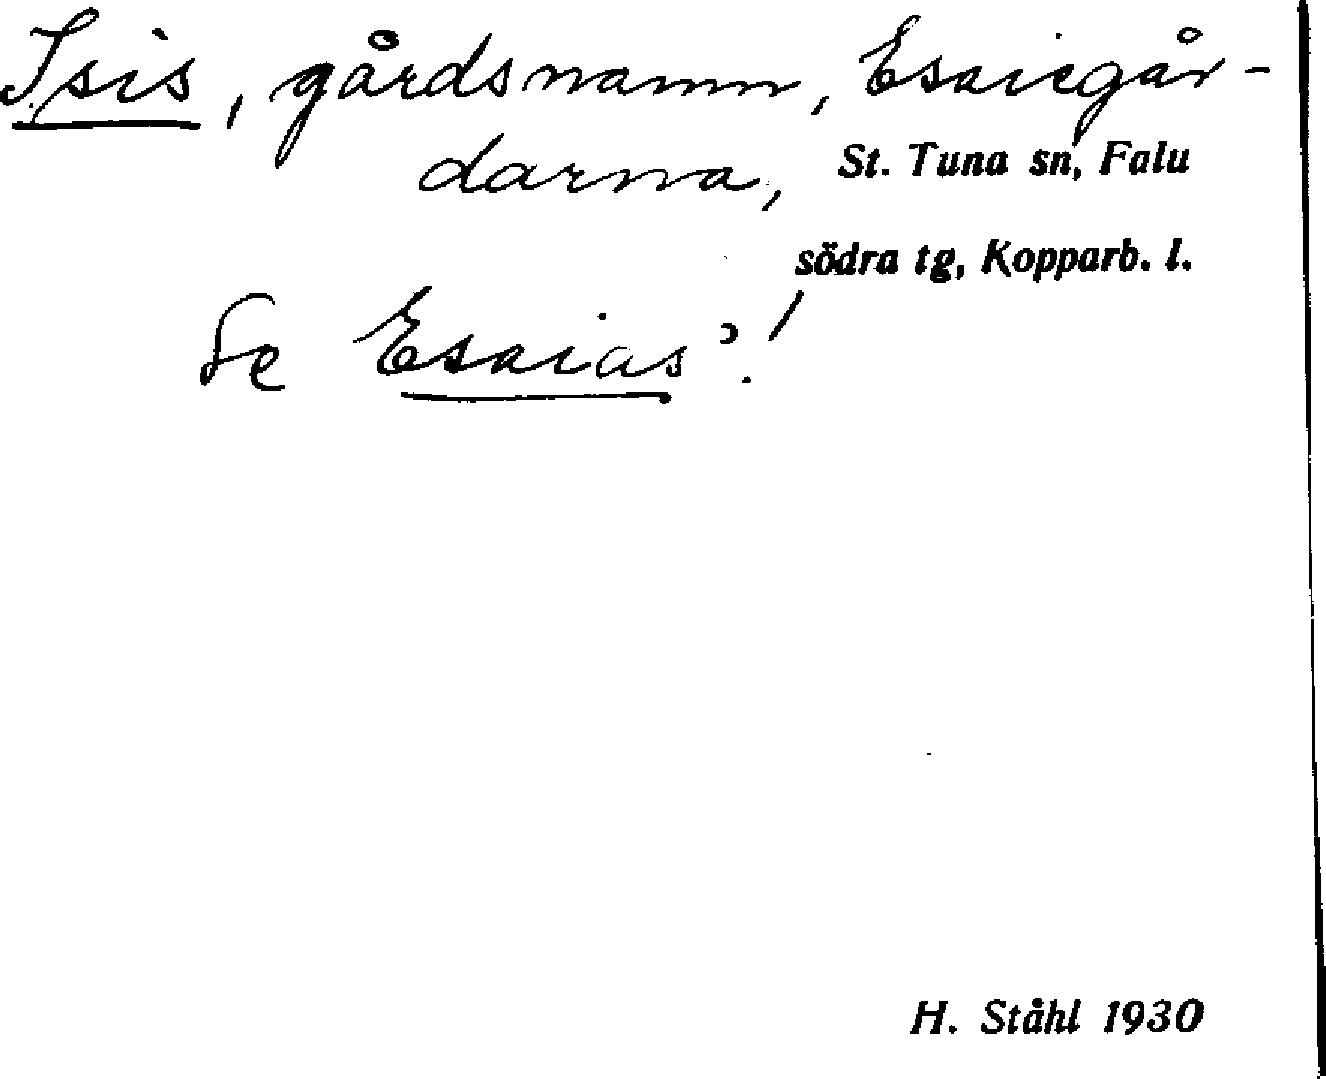 Isis, gårdsnamn, Esaiegår-
darna, St. Tuna sn, Falu
södra tg, Kopparb. l.
Se Esaias'!
H. Ståhl 1930